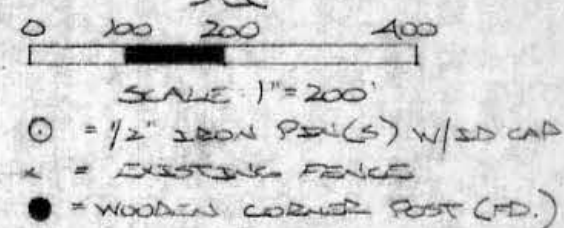 0 100 200 400
SCALE 1"=200'
= 1/2" IRON PIN(S) W/ID CAP
x = EXISTING FENCE
= WOODEN CORNER POST (FD.)